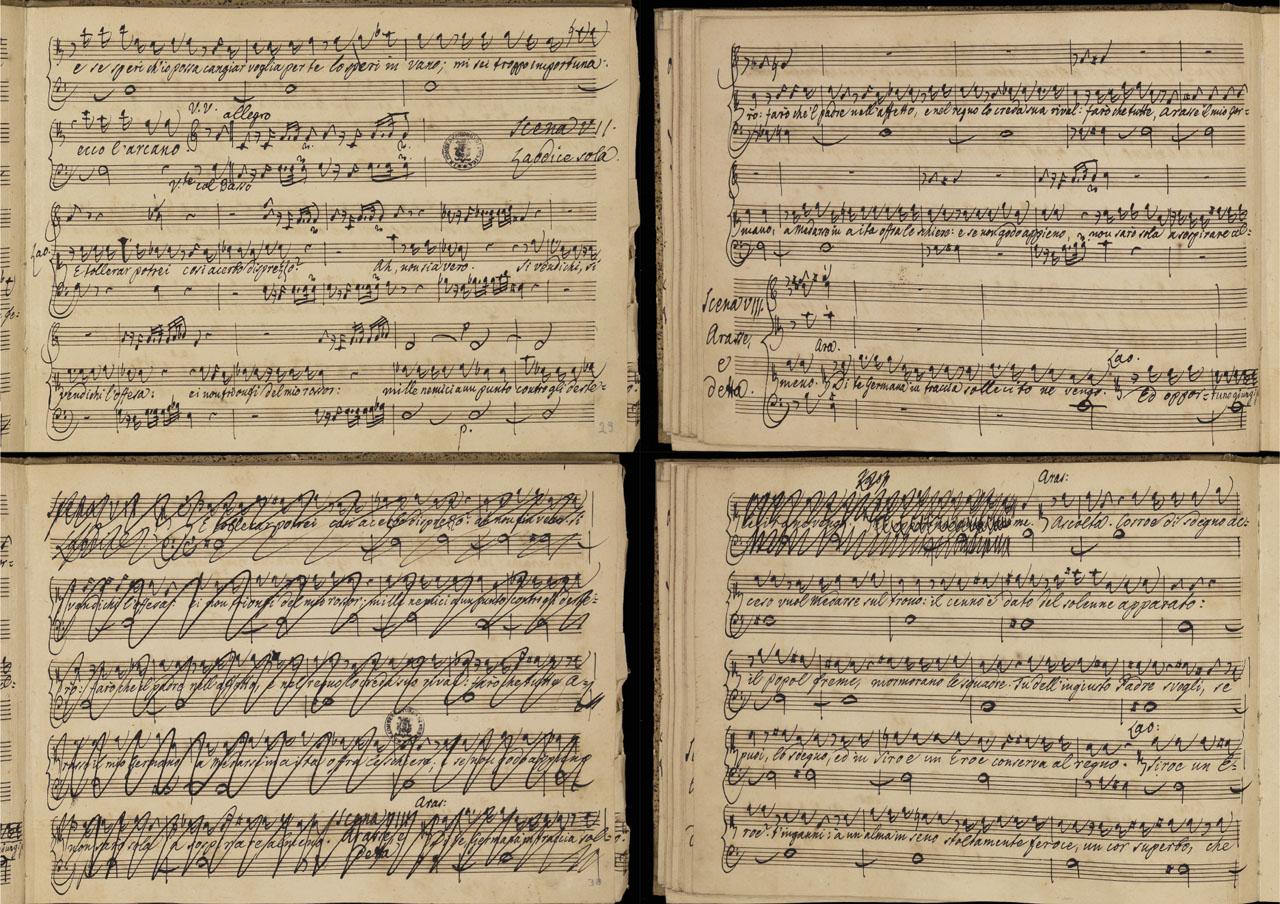 e se speri ch'io possa cangiar voglia per te lo speri in vano; mi sei troppo importuna:
V.V. allegro
ecco l'arcano
Scena VII.
Laodice sola.
Vte col Basso
Lao.
E tollerar potrei così acerbo disprezzo? Ah, non sia vero. Si vendichi, si
vendichi l'offesa: ei non trionfi del mio rossor: mille nemici a un punto contro gli deste-
p.
29
rò: farò che il padre nell'affetto, e nel regno lo creda suo rival: farò che tutte, Arasse il mio ger-
mano, a Medarse in aita offra le schiere: e se non godo appieno, non sarò sola a sospirare al-
Scena VIII.
Arasse,
e
detta.
Ara. Lao.
meno. Di te germana in traccia sollecito ne vengo. Ed oppor-tuno giungi
Scena VII
E tollerar potrei così acerbo disprezzo? ah non sia vero: si
Laodice
vendichi l'offesa: ei non trionfi del mio rossor; mille nemici a un punto contro gli deste-
rò: farò che il padre nell'affetto, e nel regno lo creda suo rival: farò che tutte A-
rasse il mio germano a Medarse in aita offra le schiere, e se non godo appieno
Aras:
Scena VIII
non sarò sola a sospirare almeno. Arasse e Di te Germana in traccia sol-
Detta
30
Aras:
me. Ascolta. Corroe di sdegno ac-
ceso vuol Medarse sul trono: il cenno è dato del solenne apparato:
il popol freme, mormorano le squadre. Tu dell'ingiusto Padre svogli, se
Lao:
puoi, lo sdegno, ed in Siroe un Eroe conserva al regno. Siroe un E-
roe? T'inganni: a un alma in seno stoltamente feroce, un cor superbo, che